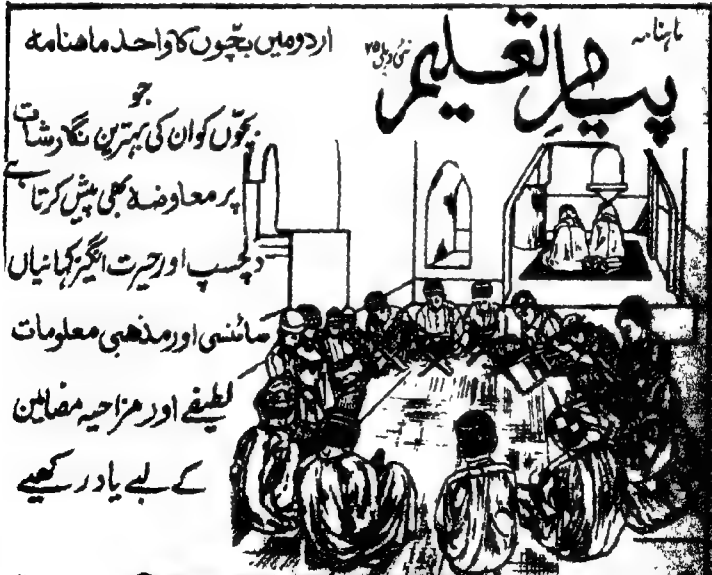 ماہنامہ
پیام تعلیم
نئی دہلی ۲۵
اردو میں بچّوں کا واحد ماھنامہ
جو
بچّوں کو ان کی بہترین نگارشات
پر معاوضہ بھی پیش کرتا ہے
دلچسپ اور حیرت انگیز کہانیاں
سائنسی اور مذہبی معلومات
لطیفے اور مزاحیہ مضامین
کے لیے یاد رکھیے